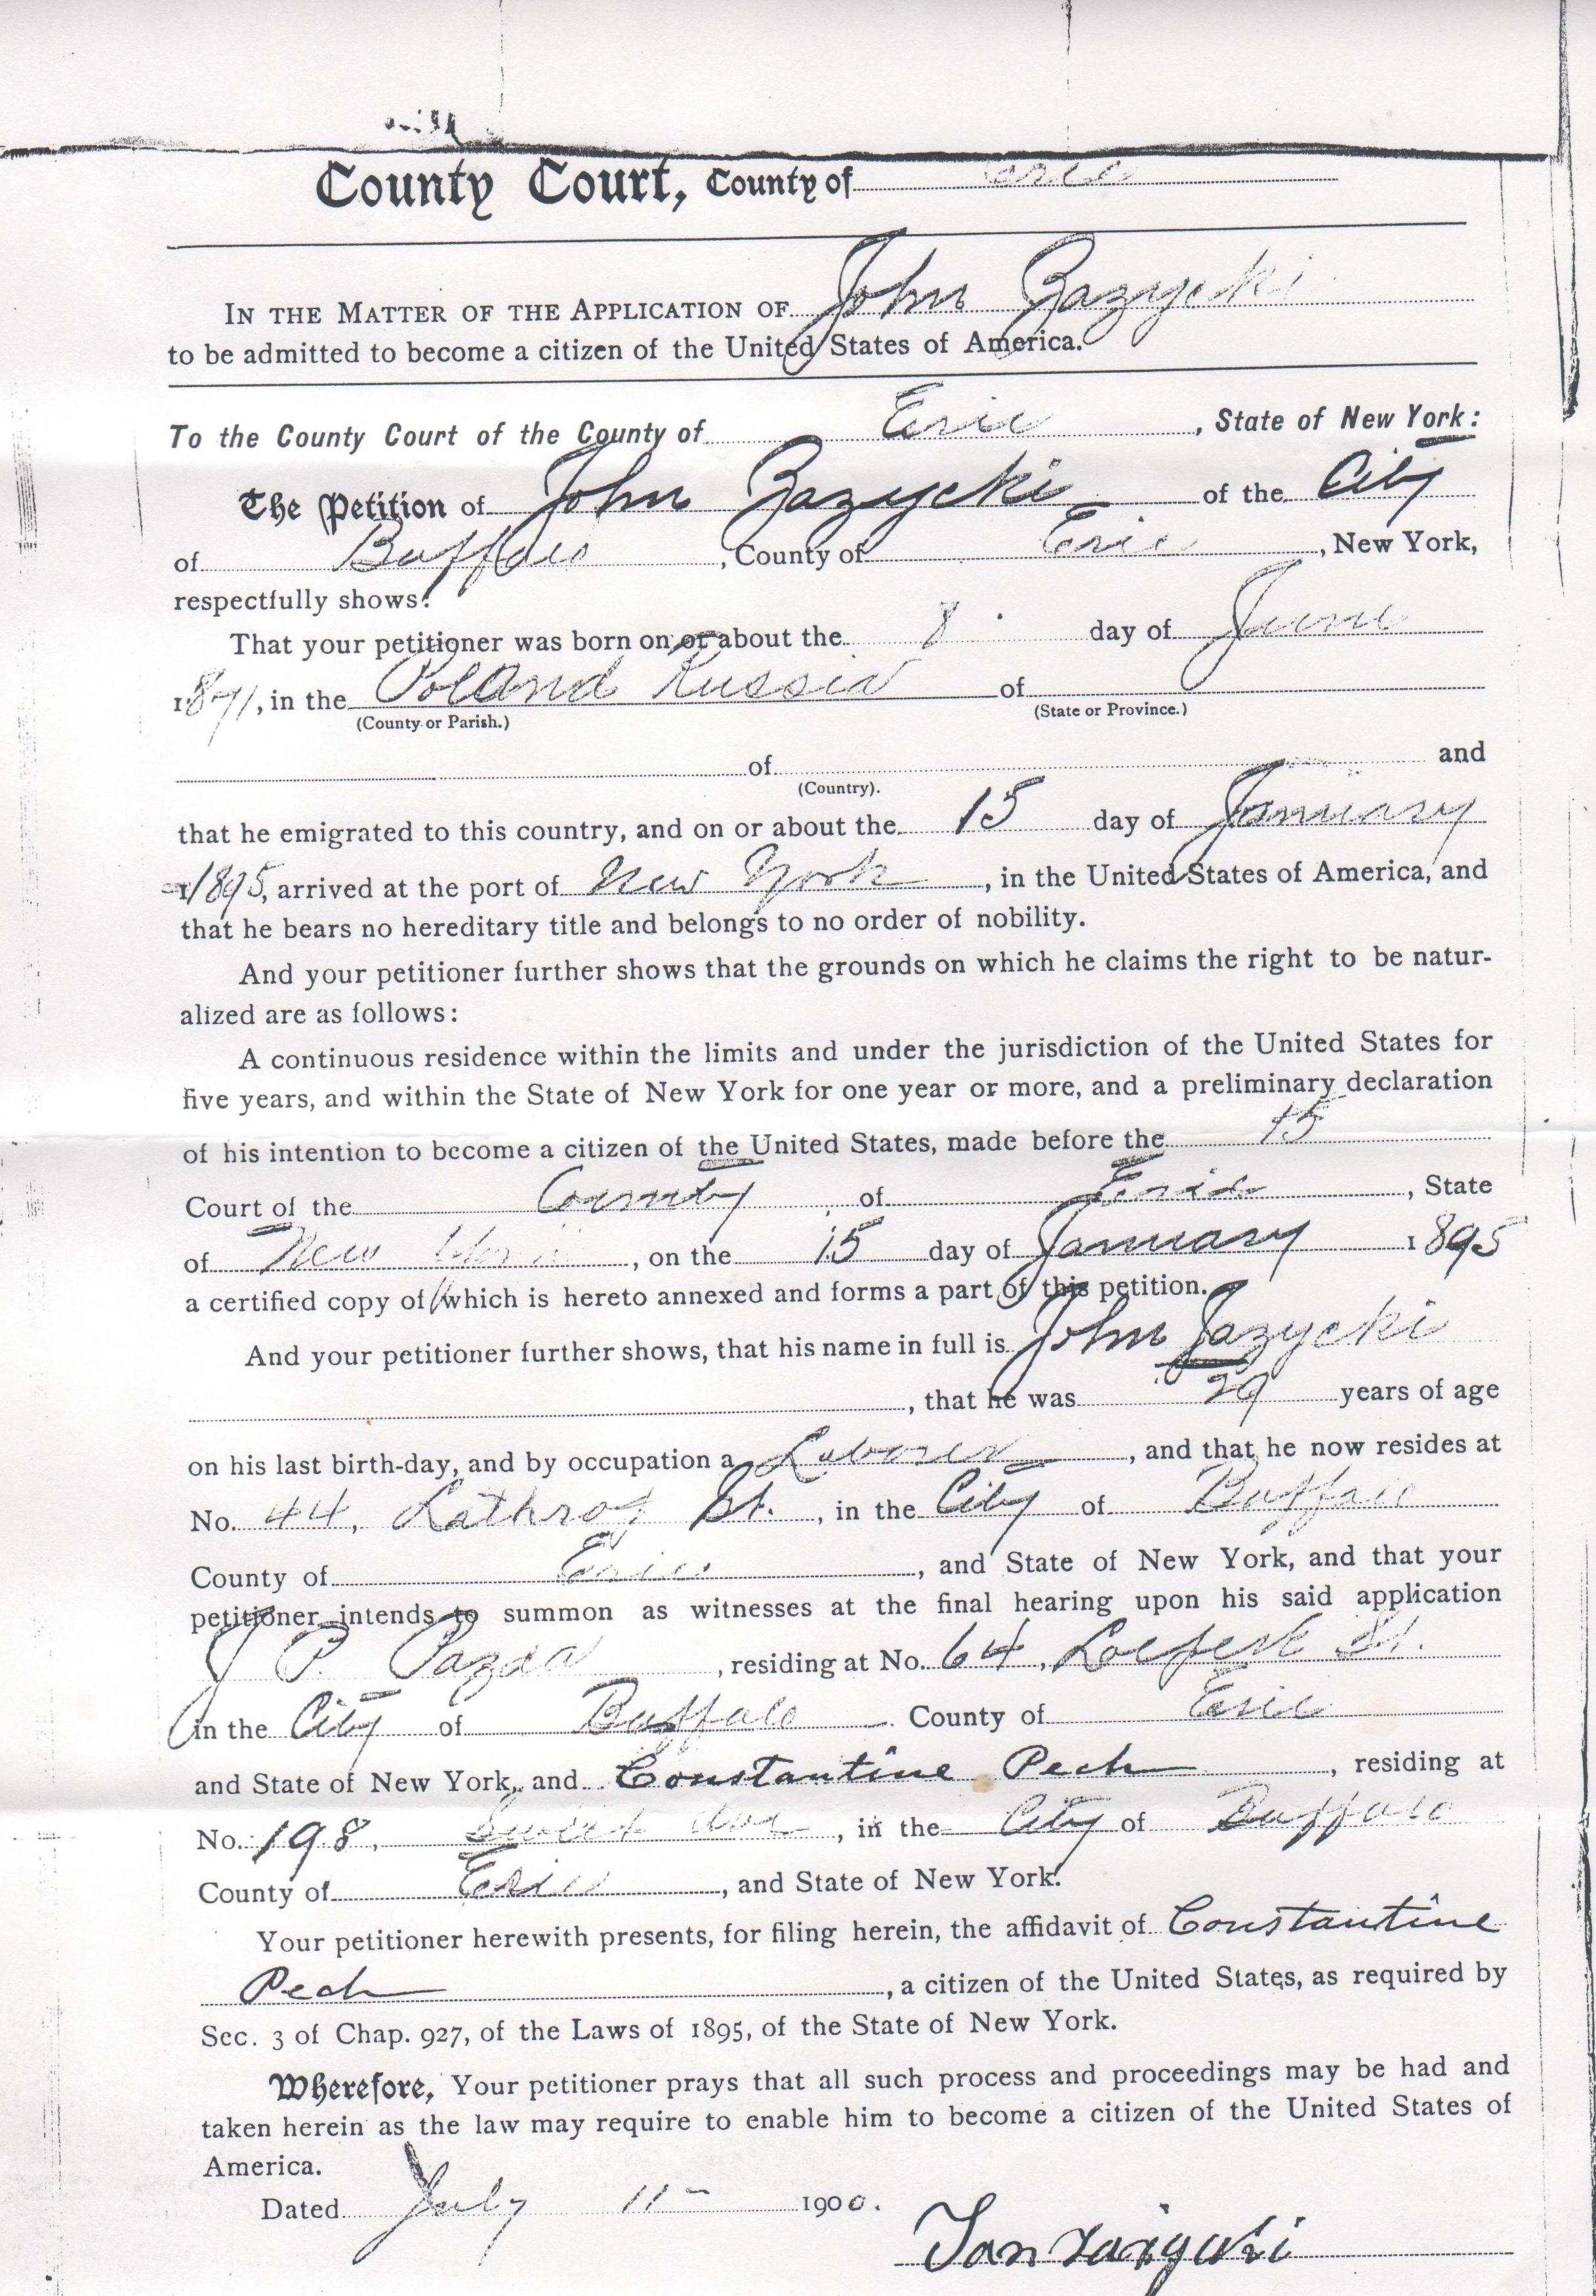 County Court, County of Erie
IN THE MATTER OF THE APPLICATION OF John Zazycki
to be admitted to become a citizen of the United States of America.
To the County Court of the County of Erie, State of New York:
The Petition of John Zazycki of the City
of Buffalo, County of Erie, New York,
respectfully shows:
That your petitioner was born on or about the 8 day of June
1871, in the Poland Russia of
(County or Parish.) (State or Province.)
of and
(Country).
that he emigrated to this country, and on or about the 15 day of January
1895, arrived at the port of New York, in the United States of America, and
that he bears no hereditary title and belongs to no order of nobility.
And your petitioner further shows that the grounds on which he claims the right to be natur-
alized are as follows:
A continuous residence within the limits and under the jurisdiction of the United States for
five years, and within the State of New York for one year or more, and a preliminary declaration
of his intention to become a citizen of the United States, made before the 15
Court of the County of Erie, State
of New York, on the 15 day of January 1895
a certified copy of which is hereto annexed and forms a part of this petition.
And your petitioner further shows, that his name in full is John Zazycki
, that he was 29 years of age
on his last birth-day, and by occupation a Laborer, and that he now resides at
No. 44, Lathrop St., in the City of Buffalo
County of Erie, and State of New York, and that your
petitioner intends to summon as witnesses at the final hearing upon his said application
J P. Pazda, residing at No. 64, St.
in the City of Buffalo County of Erie
and State of New York, and Constantine Pech, residing at
No. 198, Sweet Ave, in the City of Buffalo
County of Erie, and State of New York.
Your petitioner herewith presents, for filing herein, the affidavit of Constantine
Pech, a citizen of the United States, as required by
Sec. 3 of Chap. 927, of the Laws of 1895, of the State of New York.
Wherefore, Your petitioner prays that all such process and proceedings may be had and
taken herein as the law may require to enable him to become a citizen of the United States of
America.
Dated July 11 1900.
Jan